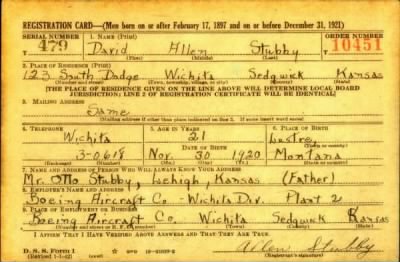 REGISTRATION CARD—(Men born on or after February 17, 1897 and on or before December 31, 1921)
SERIAL NUMBER 1. NAME (Print) ORDER NUMBER
T 479 David Allen Stubby 10451
(First) (Middle) (Last)
2. PLACE OF RESIDENCE (Print)
123 South Dodge Wichita Sedgwick Kansas
(Number and street) (Town, township, village, or city) (County) (State)
[THE PLACE OF RESIDENCE GIVEN ON THE LINE ABOVE WILL DETERMINE LOCAL BOARD
JURISDICTION; LINE 2 OF REGISTRATION CERTIFICATE WILL BE IDENTICAL]
3. MAILING ADDRESS
Same
[Mailing address if other than place indicated on line 2. If same insert word same]
4. TELEPHONE 5. AGE IN YEARS 6. PLACE OF BIRTH
Wichita 21 Lustre
DATE OF BIRTH (Town or county)
3-0618 Nov. 30 1920 Montana
(Exchange) (Number) (Mo.) (Day) (Yr.) (State or country)
7. NAME AND ADDRESS OF PERSON WHO WILL ALWAYS KNOW YOUR ADDRESS
Mr. Otto Stubby, Lehigh, Kansas (Father)
8. EMPLOYER'S NAME AND ADDRESS
Boeing Aircraft Co - Wichita Div. Plant 2
9. PLACE OF EMPLOYMENT OR BUSINESS
Boeing Aircraft Co. Wichita Sedgwick Kansas
(Number and street or R. F. D. number) (Town) (County) (State)
I AFFIRM THAT I HAVE VERIFIED ABOVE ANSWERS AND THAT THEY ARE TRUE.
D. S. S. Form 1 Allen Stubby
(Revised 1-1-42) (Registrant's signature)